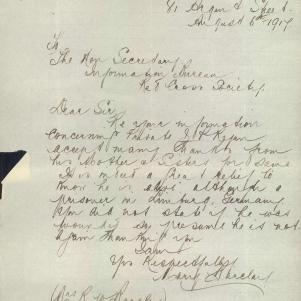 81 Argent Street
August 6th 1917
To
The Hon Secretary
Information Bureau
Red Cross Society
Dear Sir
Re your information
concerning Private J. Ryan
accept many thanks from
his Mother & Sisters for same
It is indeed a great relief to
know he is alive, although a
prisoner in Limburg, Germany
You did not state if he was
wounded so presume he is not
again thanking you
I am
Yrs Respectfully
Mary
(Mrs R W